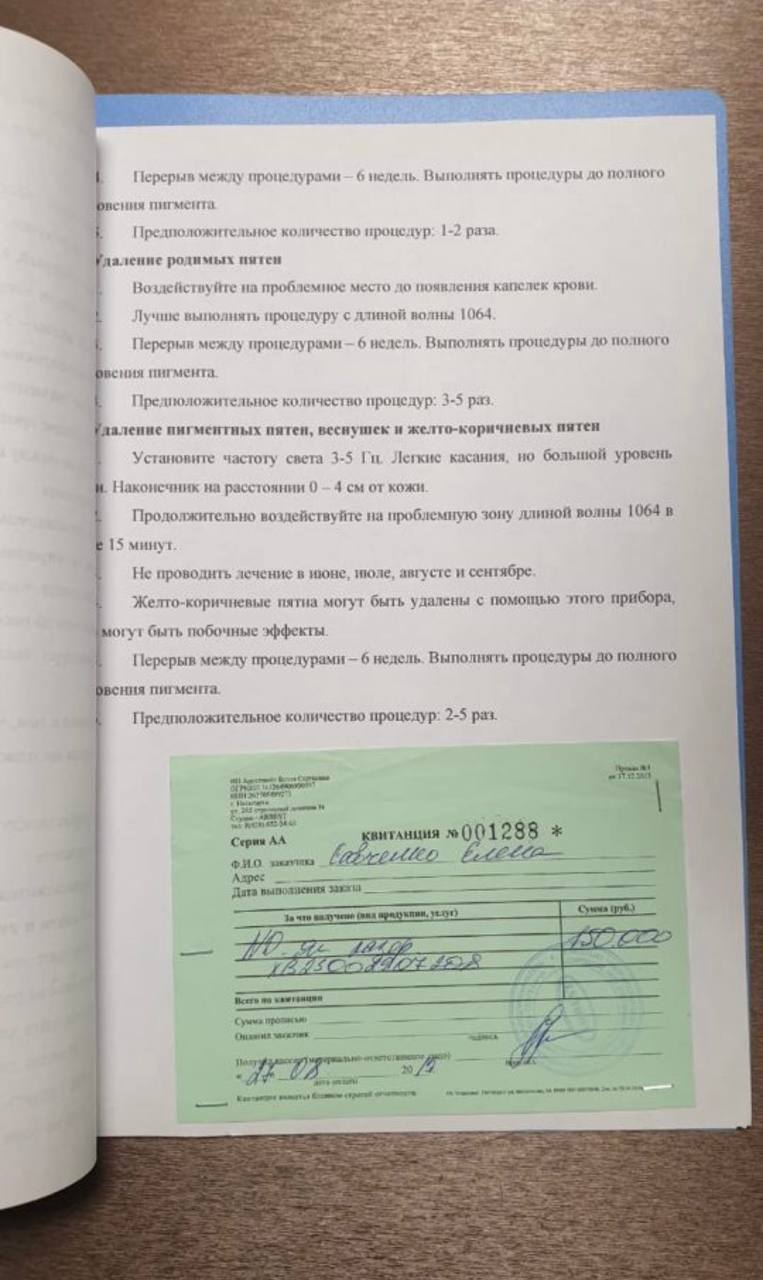 4. Перерыв между процедурами – 6 недель. Выполнять процедуры до полного
овения пигмента.
5. Предположительное количество процедур: 1-2 раза.
Удаление родимых пятен
Воздействуйте на проблемное место до появления капелек крови.
2. Лучше выполнять процедуру с длиной волны 1064.
3. Перерыв между процедурами – 6 недель. Выполнять процедуры до полного
овения пигмента.
Предположительное количество процедур: 3-5 раз.
Удаление пигментных пятен, веснушек и желто-коричневых пятен
Установите частоту света 3-5 Гц. Легкие касания, но большой уровень
и. Наконечник на расстоянии 0 – 4 см от кожи.
2. Продолжительно воздействуйте на проблемную зону длиной волны 1064 в
е 15 минут.
Не проводить лечение в июне, июле, августе и сентябре.
Желто-коричневые пятна могут быть удалены с помощью этого прибора,
могут быть побочные эффекты.
Перерыв между процедурами – 6 недель. Выполнять процедуры до полного
овения пигмента.
Предположительное количество процедур: 2-5 раз.
Серия АА
КВИТАНЦИЯ № 001288 *
Ф.И.О. заказчика Савченко Елена
Адрес
Дата выполнения заказа
За что получено (вид продукции, услуг) Сумма (руб.)
ND лазер 150.000
Всего по квитанции
Сумма прописью
Оплатил заказчик подпись
Получил кассир (материально-ответственное лицо)
« 27 » 08 20 19
дата оплаты
Квитанция является бланком строгой отчетности